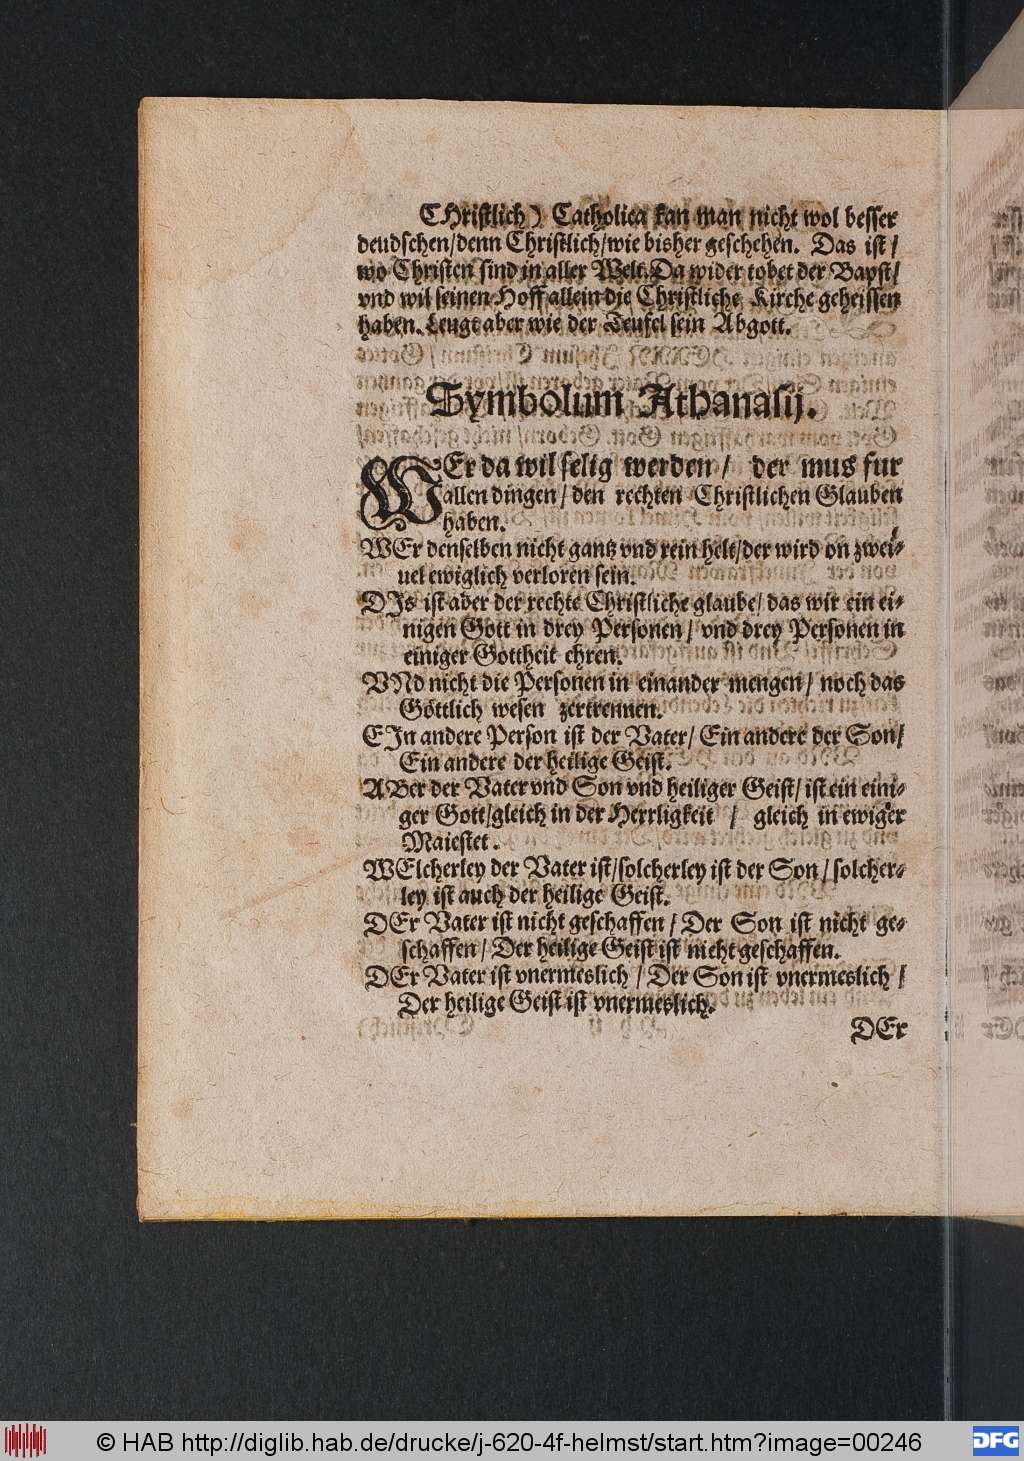 CHristlich) Catholica kan man nicht wol besser
deudschen/denn Christlich/wie bisher geschehen. Das ist/
wo Christen sind in aller Welt. Da wider tobet der Bapst/
vnd wil seinen Hoff allein die Christliche Kirche geheissen
haben. Leugt aber wie der Teufel sein Abgott.
Symbolum Athanasij.
WEr da wil selig werden/ der mus fur
allen dingen/den rechten Christlichen Glauben
haben.
WEr denselben nicht gantz vnd rein helt/der wird on zwei-
uel ewiglich verloren sein.
DIs ist aber der rechte Christliche glaube/das wir ein ei-
nigen Gott in drey Personen/ vnd drey Personen in
einiger Gottheit ehren.
VNd nicht die Personen in einander mengen/ noch das
Göttlich wesen zertrennen.
EIn andere Person ist der Vater/ Ein andere der Son/
Ein andere der heilige Geist.
ABer der Vater vnd Son vnd heiliger Geist/ ist ein eini-
ger Gott/gleich in der Herrligkeit / gleich in ewiger
Maiestet.
WElcherley der Vater ist/solcherley ist der Son/solcher-
ley ist auch der heilige Geist.
DEr Vater ist nicht geschaffen/ Der Son ist nicht ge-
schaffen/ Der heilige Geist ist nicht geschaffen.
DEr Vater ist vnermeslich/ Der Son ist vnermeslich/
Der heilige Geist ist vnermeslich.
DEr
© HAB http://diglib.hab.de/drucke/j-620-4f-helmst/start.htm?image=00246
DFG